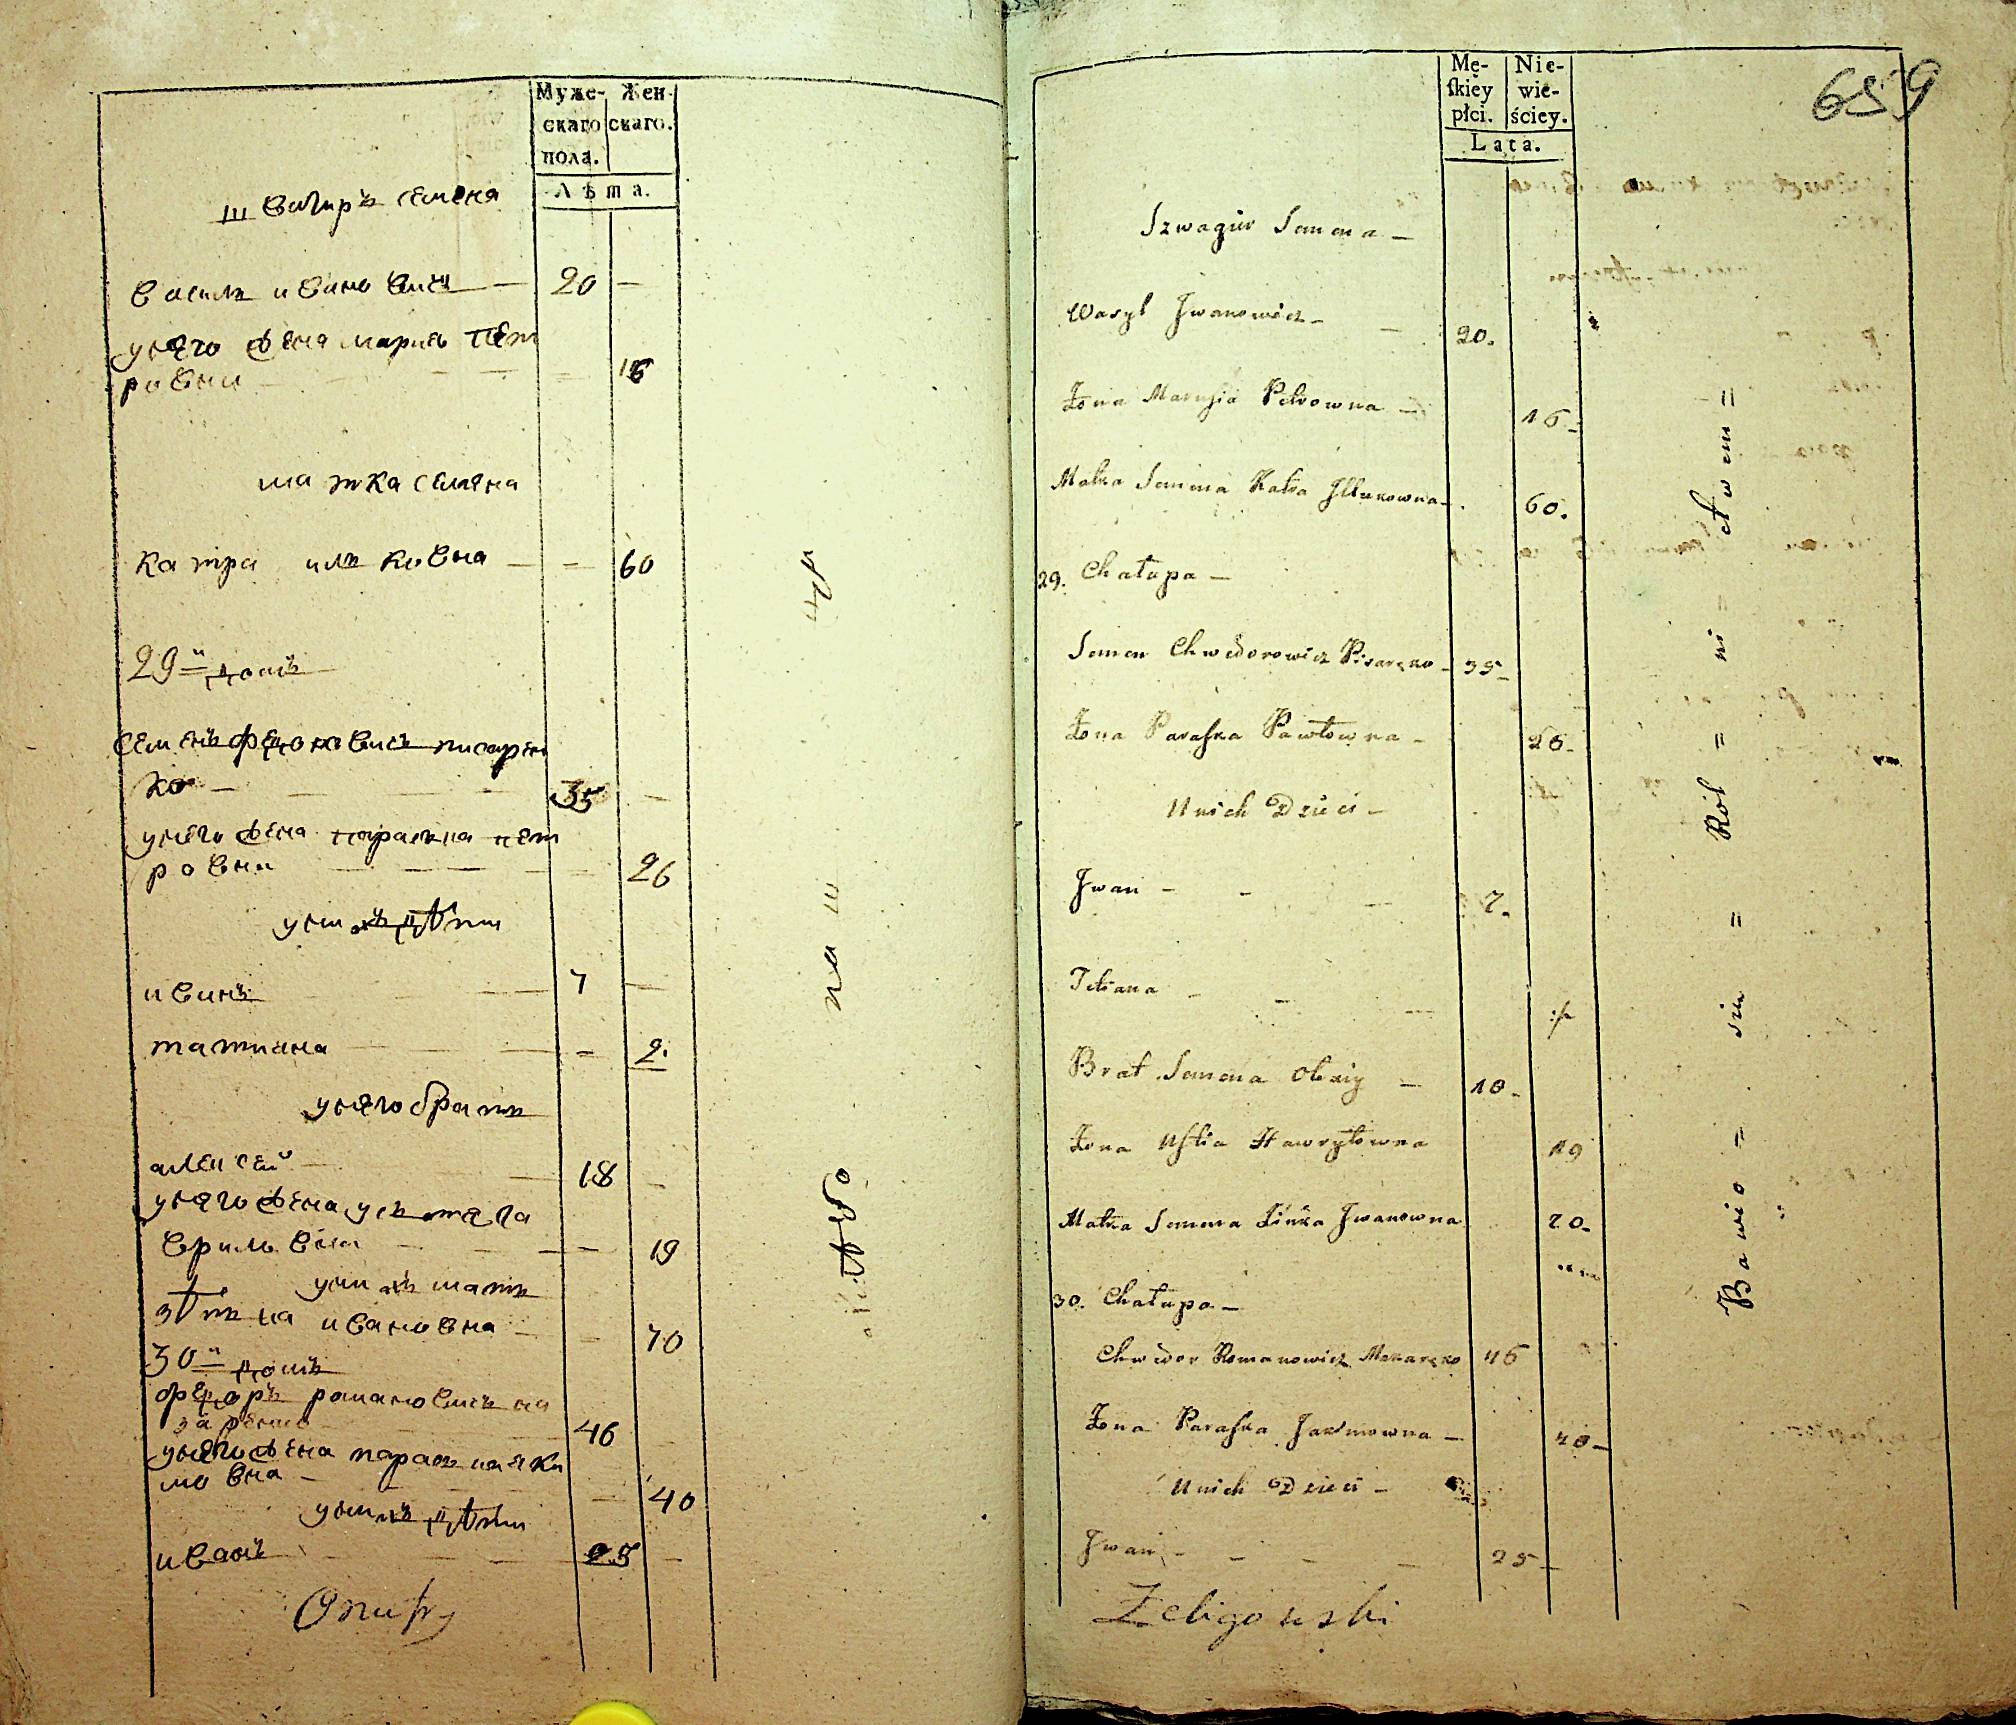 Муже- Жен
скаго скаго.
пола.
Лѣта.
швагиръ семена
василь иванович — 20 —
унего жена марися пет
ровна — 16
матка семена
катра ильковна — — 60
29й домъ
семенъ федоровичъ писарен
ко — 35 —
унего жена параска пет
ровна — 26
унихъ дѣти
иванъ — 7 —
татиана — — 2.
унего братъ
алексей — 18 —
унего жена устя га
врилвна — 19
унихъ мать
зѣнька ивановна — 70
30й домъ
федоръ романовичъ
46
унего жена параска яки
мовна — 40
унихъ дѣти
иванъ — 25 —
Onufry
659
Mę- Nie-
skiey wie-
płci. ściey.
Lata.
Szwagier Semena —
Wasyl Jwanowicz — 20.
Żona Marysia Petrowna — 16
Matka Semena Katra Jlkowna — 60.
29. Chałupa —
Semen Chwedorowicz Pisaręko — 35
Żona Paraska Pawłowna — 26
U nich Dzieci —
Jwan — 7.
Tetiana —
Brat Semena Olexiy — 18
Żona Ustia Hawryłowna 19
Matka Semena Zińka Jwanowna 70
30. Chałupa —
Chwedor Romanowicz 46
Żona Paraska Jakimowna — 40
U nich Dzieci —
Jwan — 25
Żeligowski
Bawio = sie = Rol = ni = ctwem =